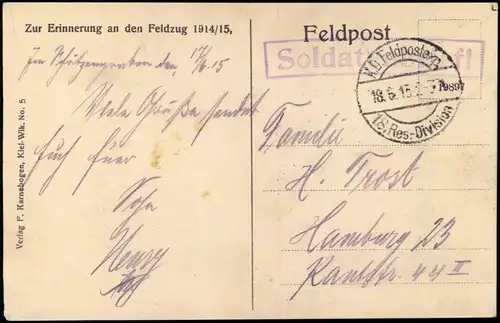 Zur Erinnerung an den Feldzug 1914/15.
Im Schützengraben den, 17/6.15
Viele Grüße sendet
Euch Euer
Sohn
Henry
Verlag P. Karnebogen, Kiel-Wik. No. 5
Feldpost
Soldatenbrief!
K.D. Feldpostexp.
18.6.15.
18. Res.-Division
19897
Familie
H. Trost
Hamburg 23
Kantstr. 44 II